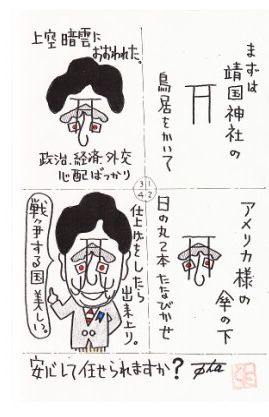 まずは
靖国神社の
鳥居をかいて
アメリカ様の
傘の下
日の丸2本たなびかせ
上空暗雲に
おおわれた。
政治、経済、外交
心配ばっかり
仕上げをしたら
出来上り。
戦争する国
美しい。
3 1
4 2
安心して任せられますか?